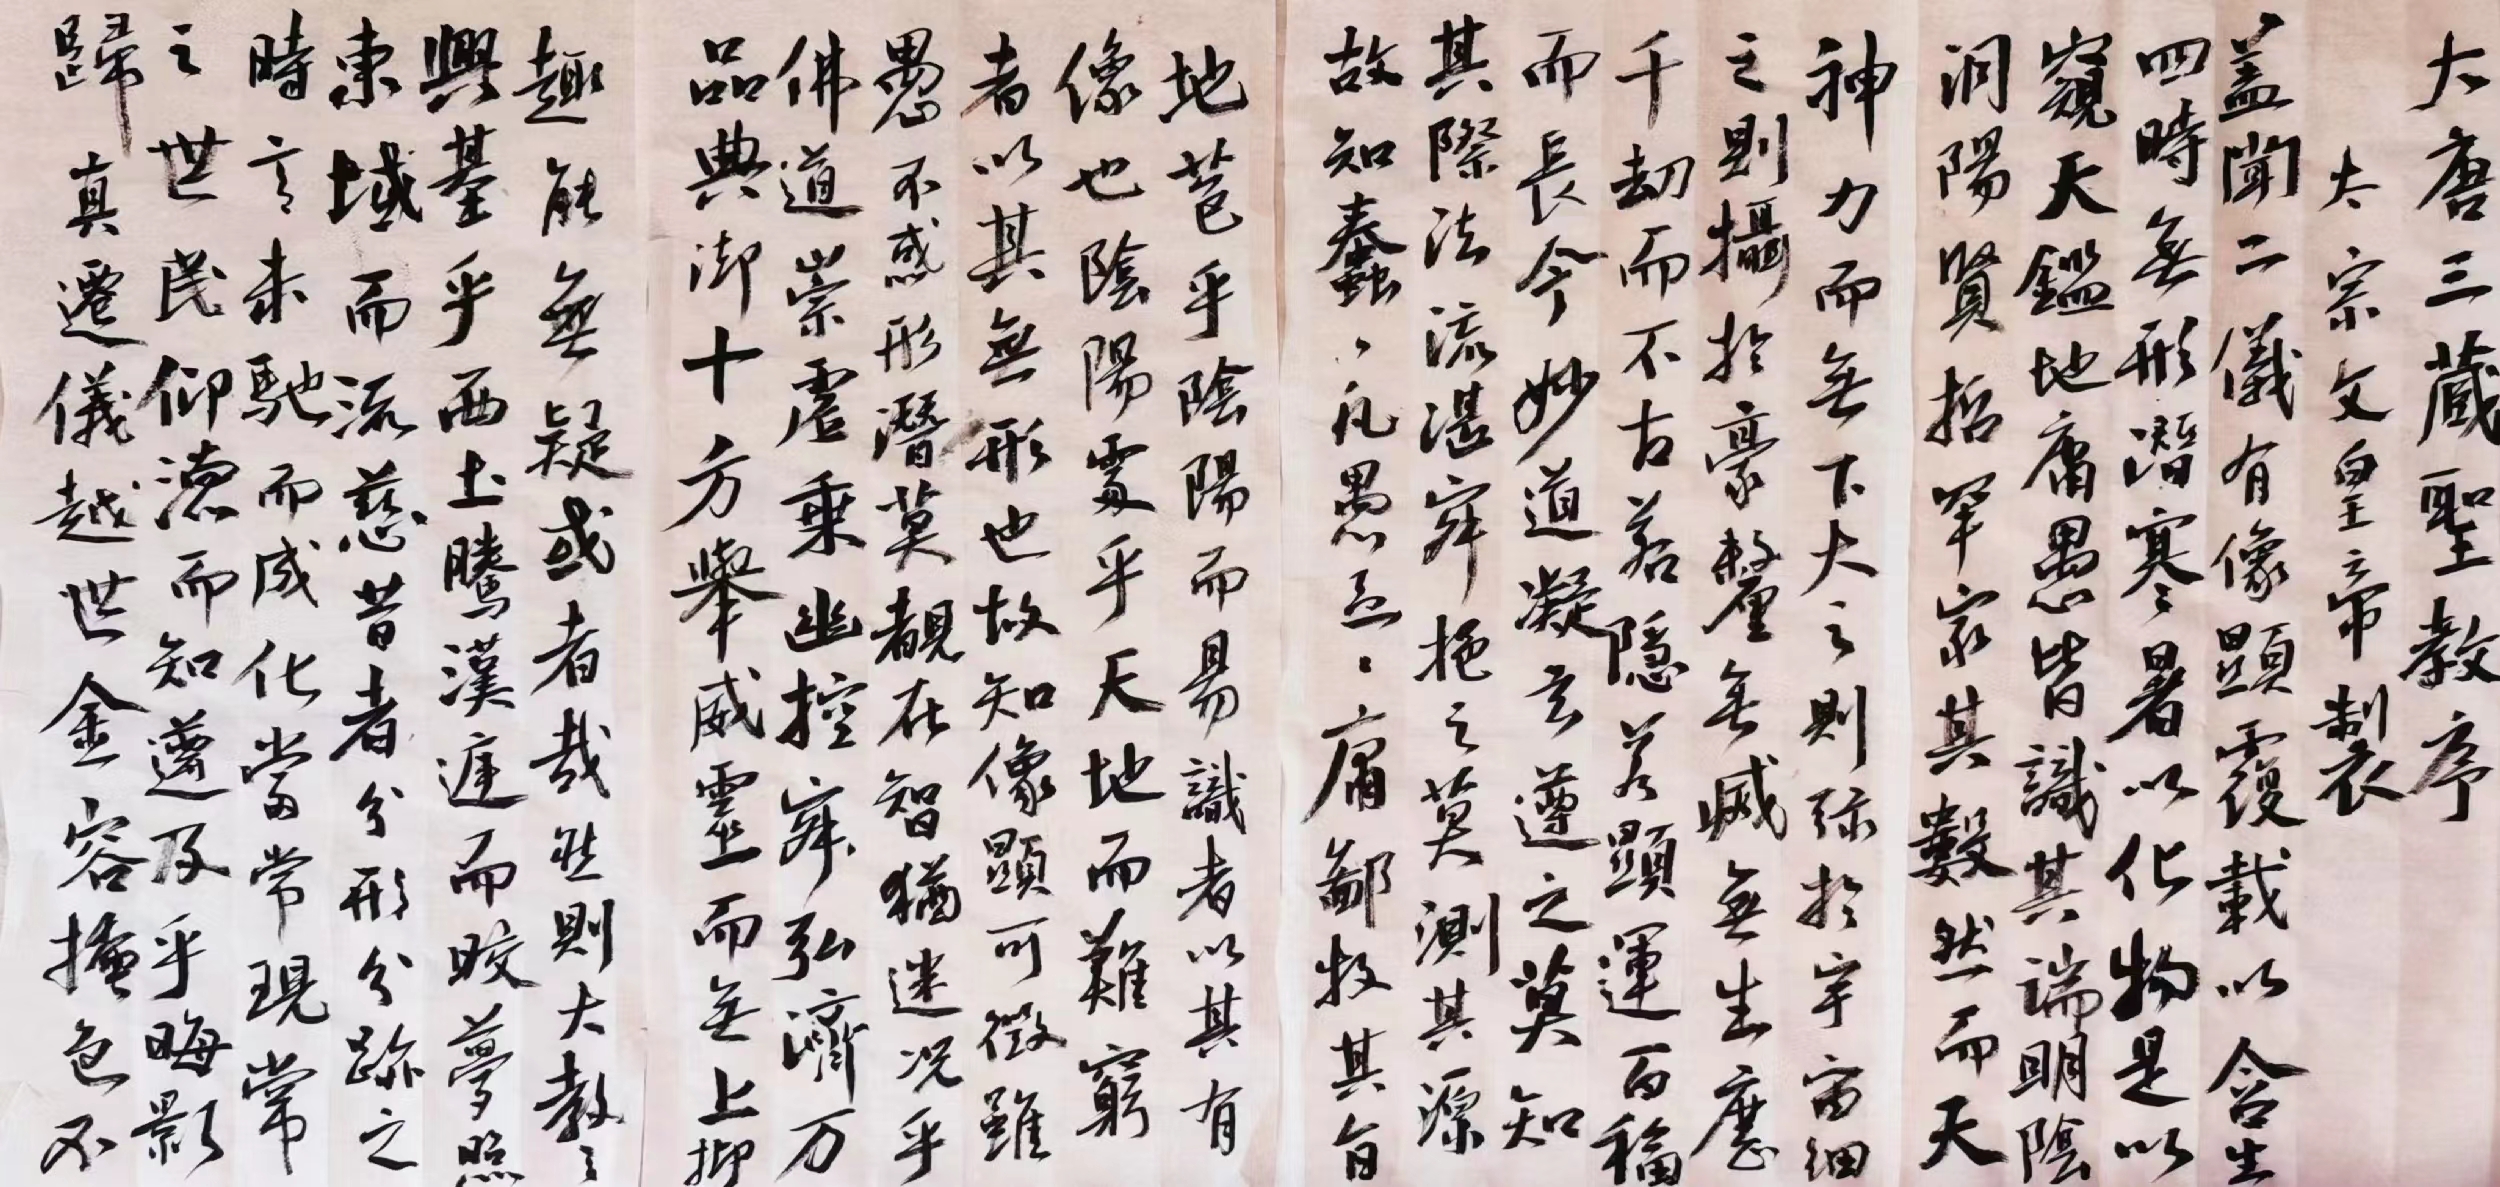 大唐三藏聖教序
太宗文皇帝製
蓋聞二儀有像顯覆載以含生
四時無形潛寒暑以化物是以
窺天鑑地庸愚皆識其端明陰
洞陽賢哲罕家其數然而天
地苞乎陰陽而易識者以其有
像也陰陽處乎天地而難窮
者以其無形也故知像顯可徵雖
愚不惑形潛莫覩在智猶迷況乎
佛道崇虛乘幽控寂弘濟万
品典御十方舉威靈而無上抑
神力而無下大之則弥於宇宙細
之則攝於豪釐無滅無生歷
千劫而不古若隱若顯運百福
而長今妙道凝玄遵之莫知
其際法流湛寂挹之莫測其源
故知蠢々凡愚區々庸鄙投其旨
趣能無疑或者哉然則大教之
興基乎西土騰漢庭而皎夢照
東域而流慈昔者分形分跡之
時言未馳而成化當常現常
之世民仰德而知遵及乎晦影
歸真遷儀越世金容掩色不